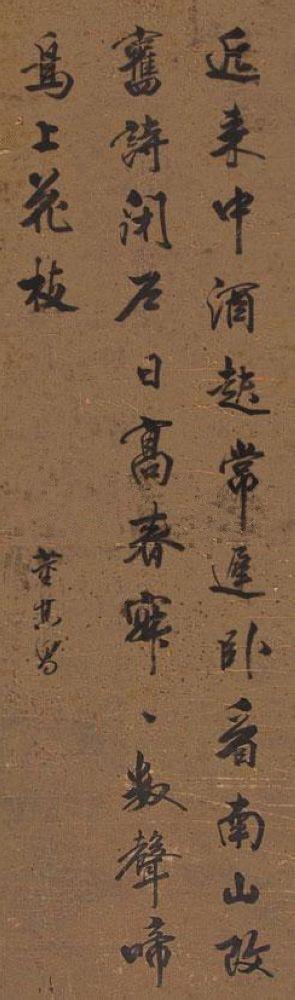 近来中酒起常遲卧看南山改
舊詩閉户日高春寂、數聲啼
鳥上花枝
董其昌